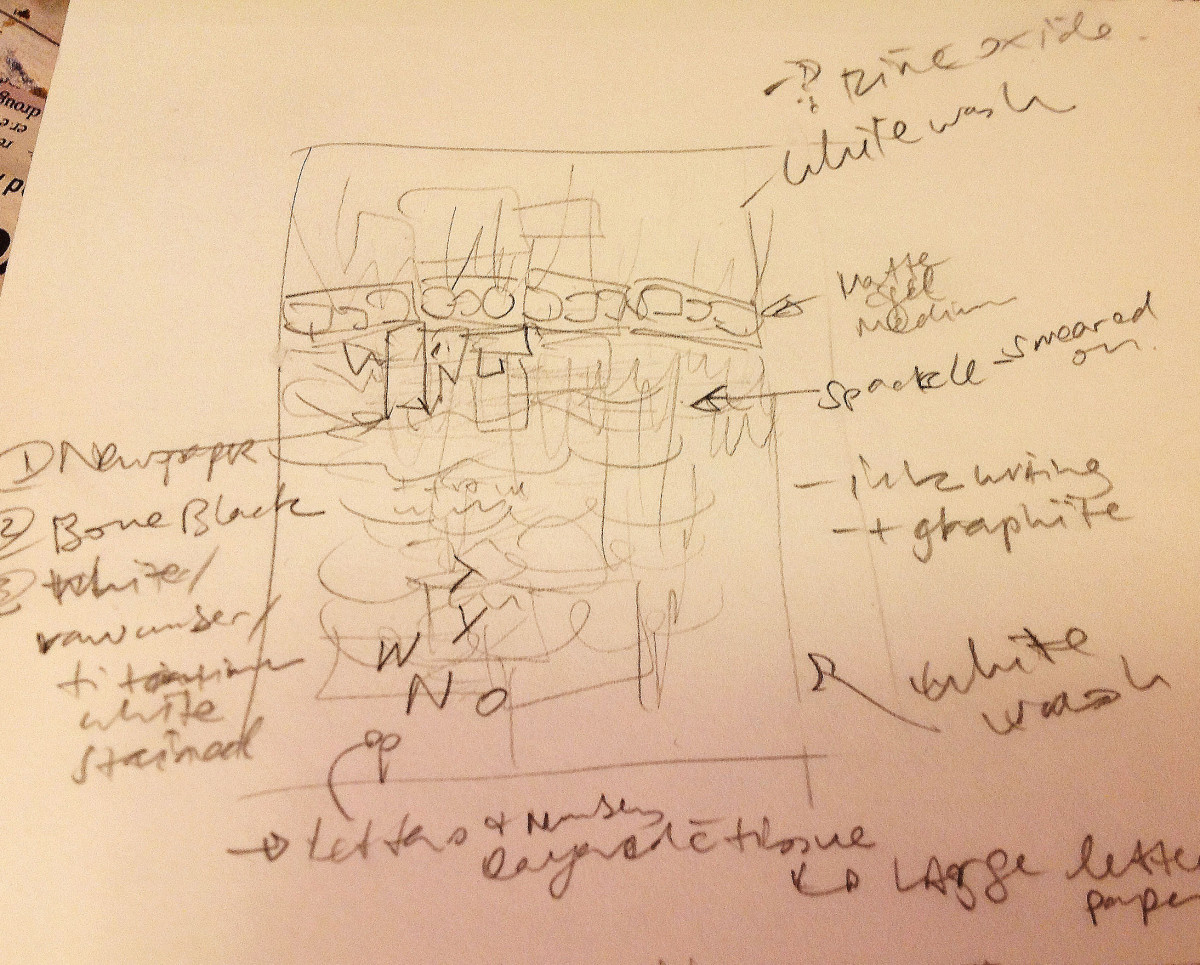 oxide
white wash
Matte
gel
Medium
spackle - smeared
on.
① Newspaper
② Bone Black
③ White/
raw umber/
titanium
white
stained
- ink writing
- + graphite
W
N
Y
W
N O
white
wash
→ Letters + Numbers
Layered c̄ tissue
↳ Large letter
paper